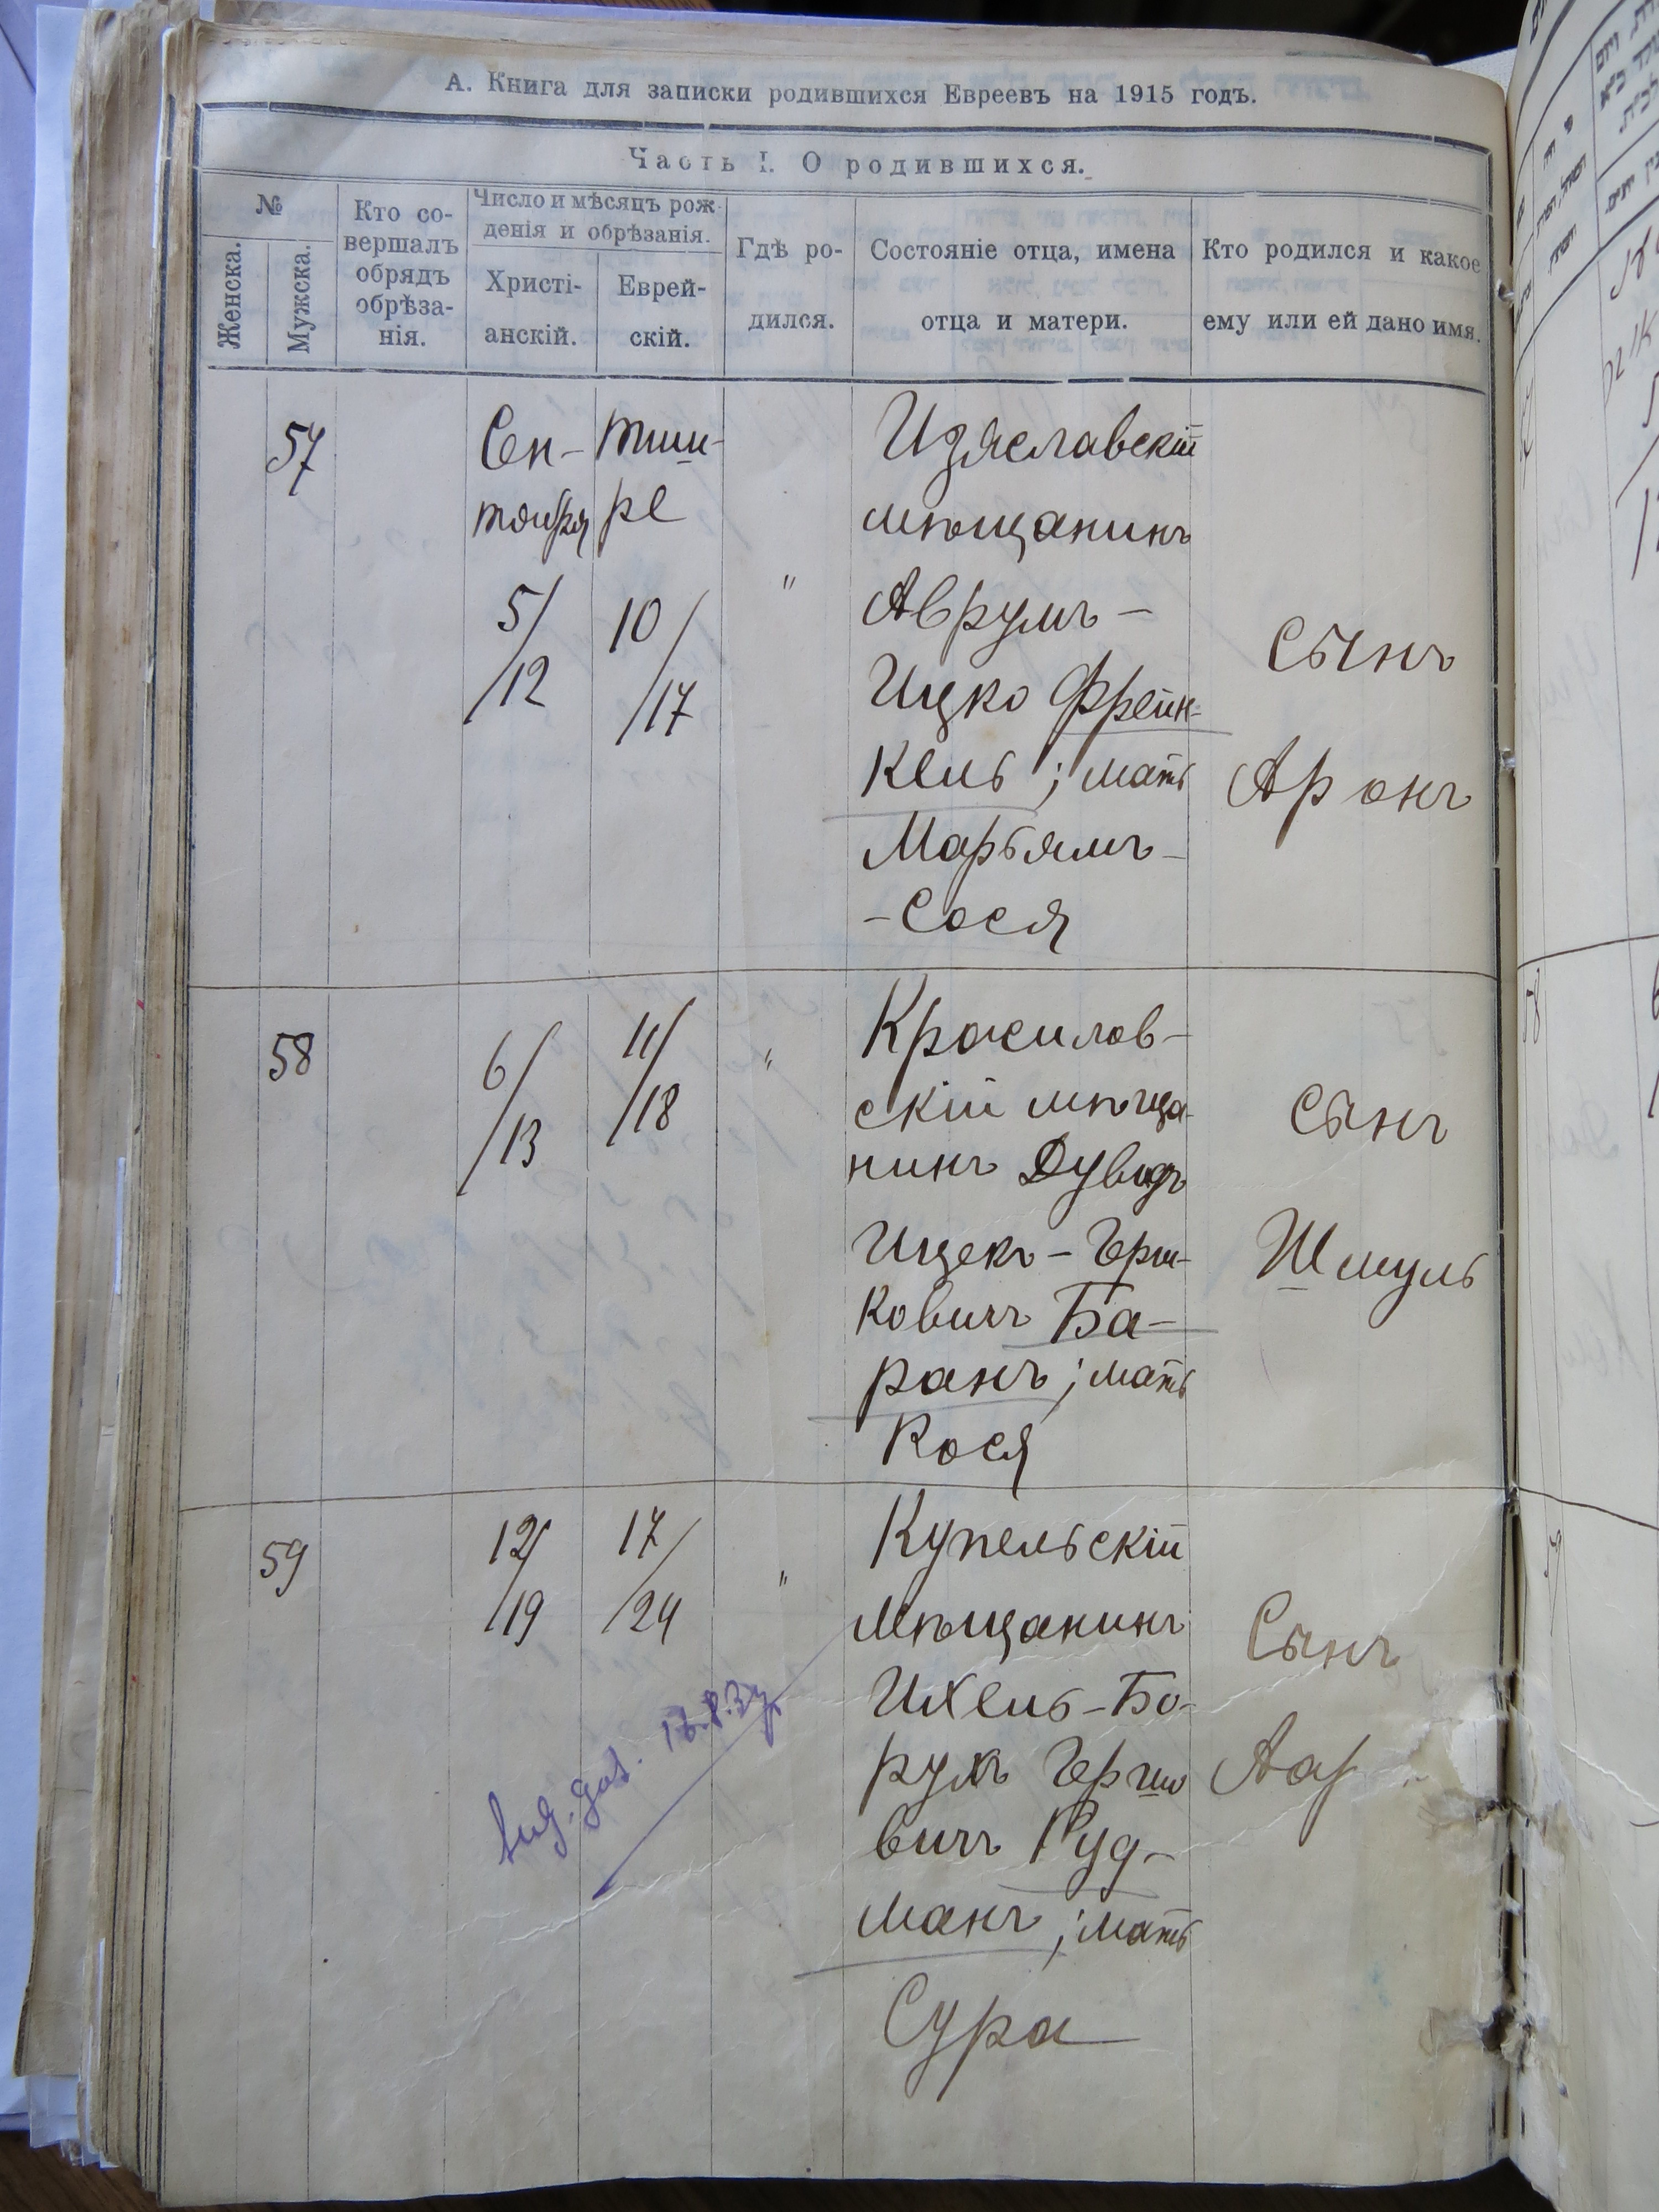 А. Книга для записки родившихся Евреевъ на 1915 годъ.
Часть I. О родившихся.
№
Женска.
Мужска.
Кто со-
вершалъ
обрядъ
обрѣза-
нія.
Число и мѣсяцъ рож-
денія и обрѣзанія.
Христі-
анскій.
Еврей-
скій.
Гдѣ ро-
дился.
Состояніе отца, имена
отца и матери.
Кто родился и какое
ему или ей дано имя.
57
Сен-
тября
5/
/12
Тиш-
ре
10/
/17
"
Изяславскій
мѣщанинъ
Аврумъ-
Ицко Френ-
кель; мать
Марьямъ-
-Сося
Сынъ
Аронъ
58
6/
/13
11/
/18
"
Красилов-
скій мѣща-
нинъ Дувидъ
Ицекъ-Герш-
ковичъ Ба-
ранъ; мать
Кося
Сынъ
Шмуль
59
12/
/19
17/
/24
"
Купельскій
мѣщанинъ
Ихель-Бо-
рухъ Герш­о
вичъ Руд-
манъ; мать
Сура
Сынъ
Аар